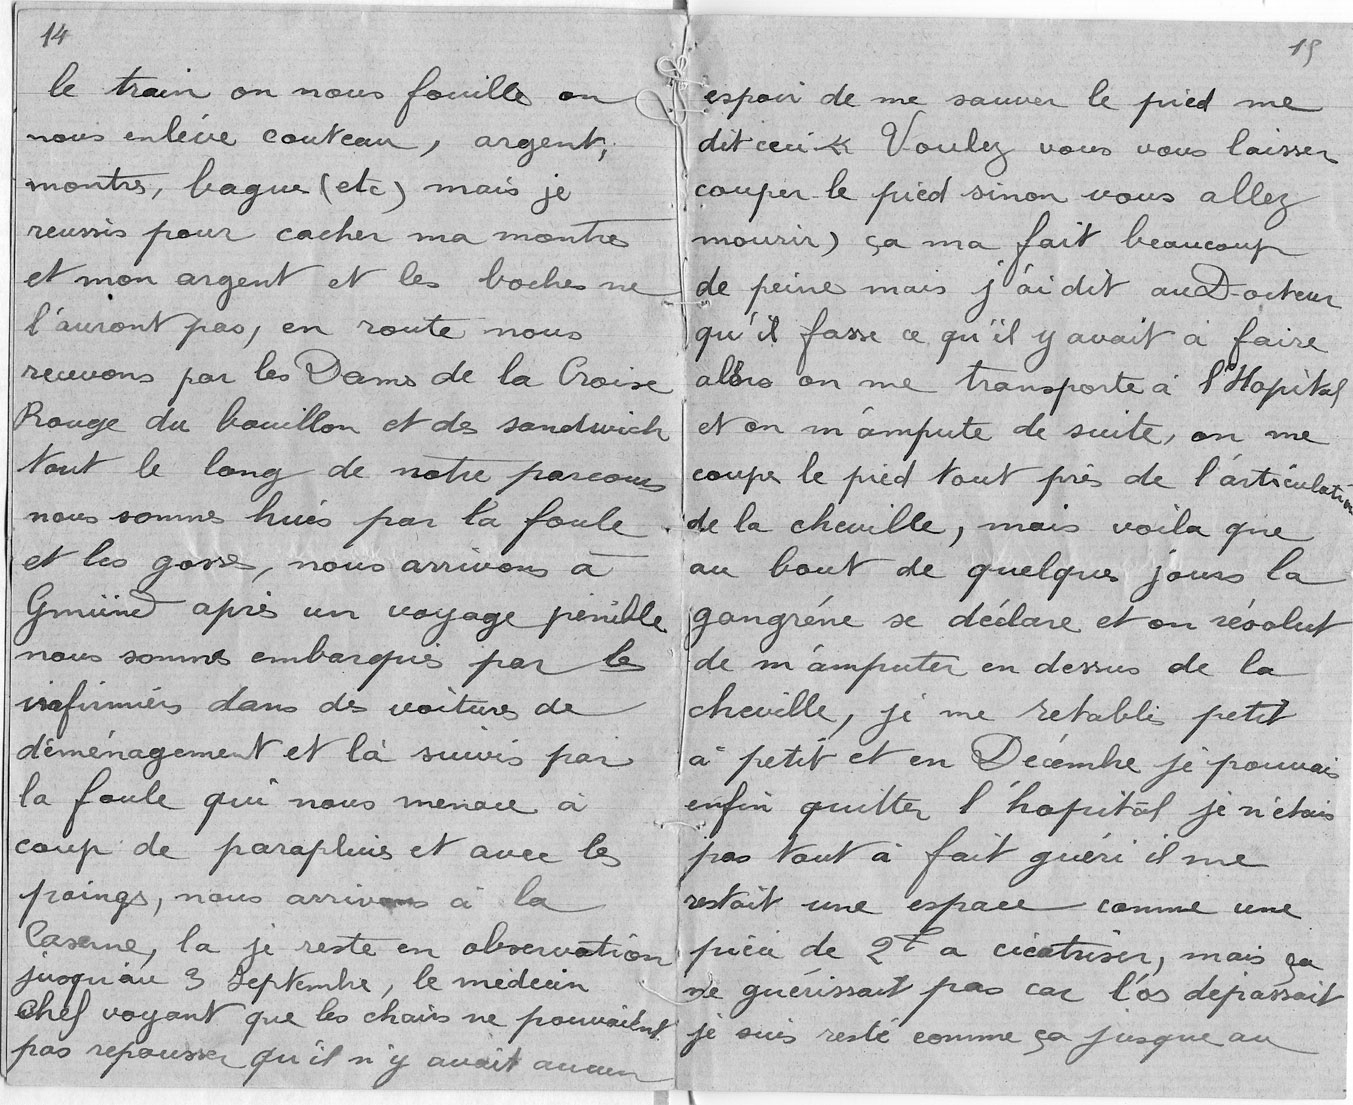 14
le train on nous fouille on
nous enlève couteau, argent,
montres, bague (etc) mais je
reussis pour cacher ma montre
et mon argent et les boches ne
l'auront pas, en route nous
recevons par les Dames de la Croise
Rouge du bouillon et des sandwich
tout le long de notre parcours
nous sommes huès par la foule
et les gosses, nous arrivons à
Gmünd après un voyage pénible
nous sommes embarquès par les
infirmiers dans des voitures de
déménagement et là suivis par
la foule qui nous menace à
coup de parapluies et avec les
poings, nous arrivons à la
Caserne, la je reste en observation
jusqu'au 3 Septembre, le mèdecin
chef voyant que les chairs ne pouvaient
pas repousser qu'il n'y avait aucun
15
espoir de me sauver le pied me
dit ceci « Voulez vous vous laisser
couper le pied sinon vous allez
mourir) ça ma fait beaucoup
de peine mais j'ai dit au Docteur
qu'il fasse ce qu'il y avait à faire
alors on me transporte à l'Hopital
et on m'ampute de suite, on me
coupe le pied tout près de l'articulation
de la cheville, mais voila que
au bout de quelques jours la
gangréne se déclare et on résolut
de m'amputer en dessus de la
cheville, je me retablis petit
à petit et en Décembre je pouvais
enfin quitter l'hopital je n'étais
pas tout à fait guéri il me
restait une espace comme une
pièce de 2f a cicatriser, mais ça
ne guérissait pas car l'os dépassait
je suis resté comme ça jusque au